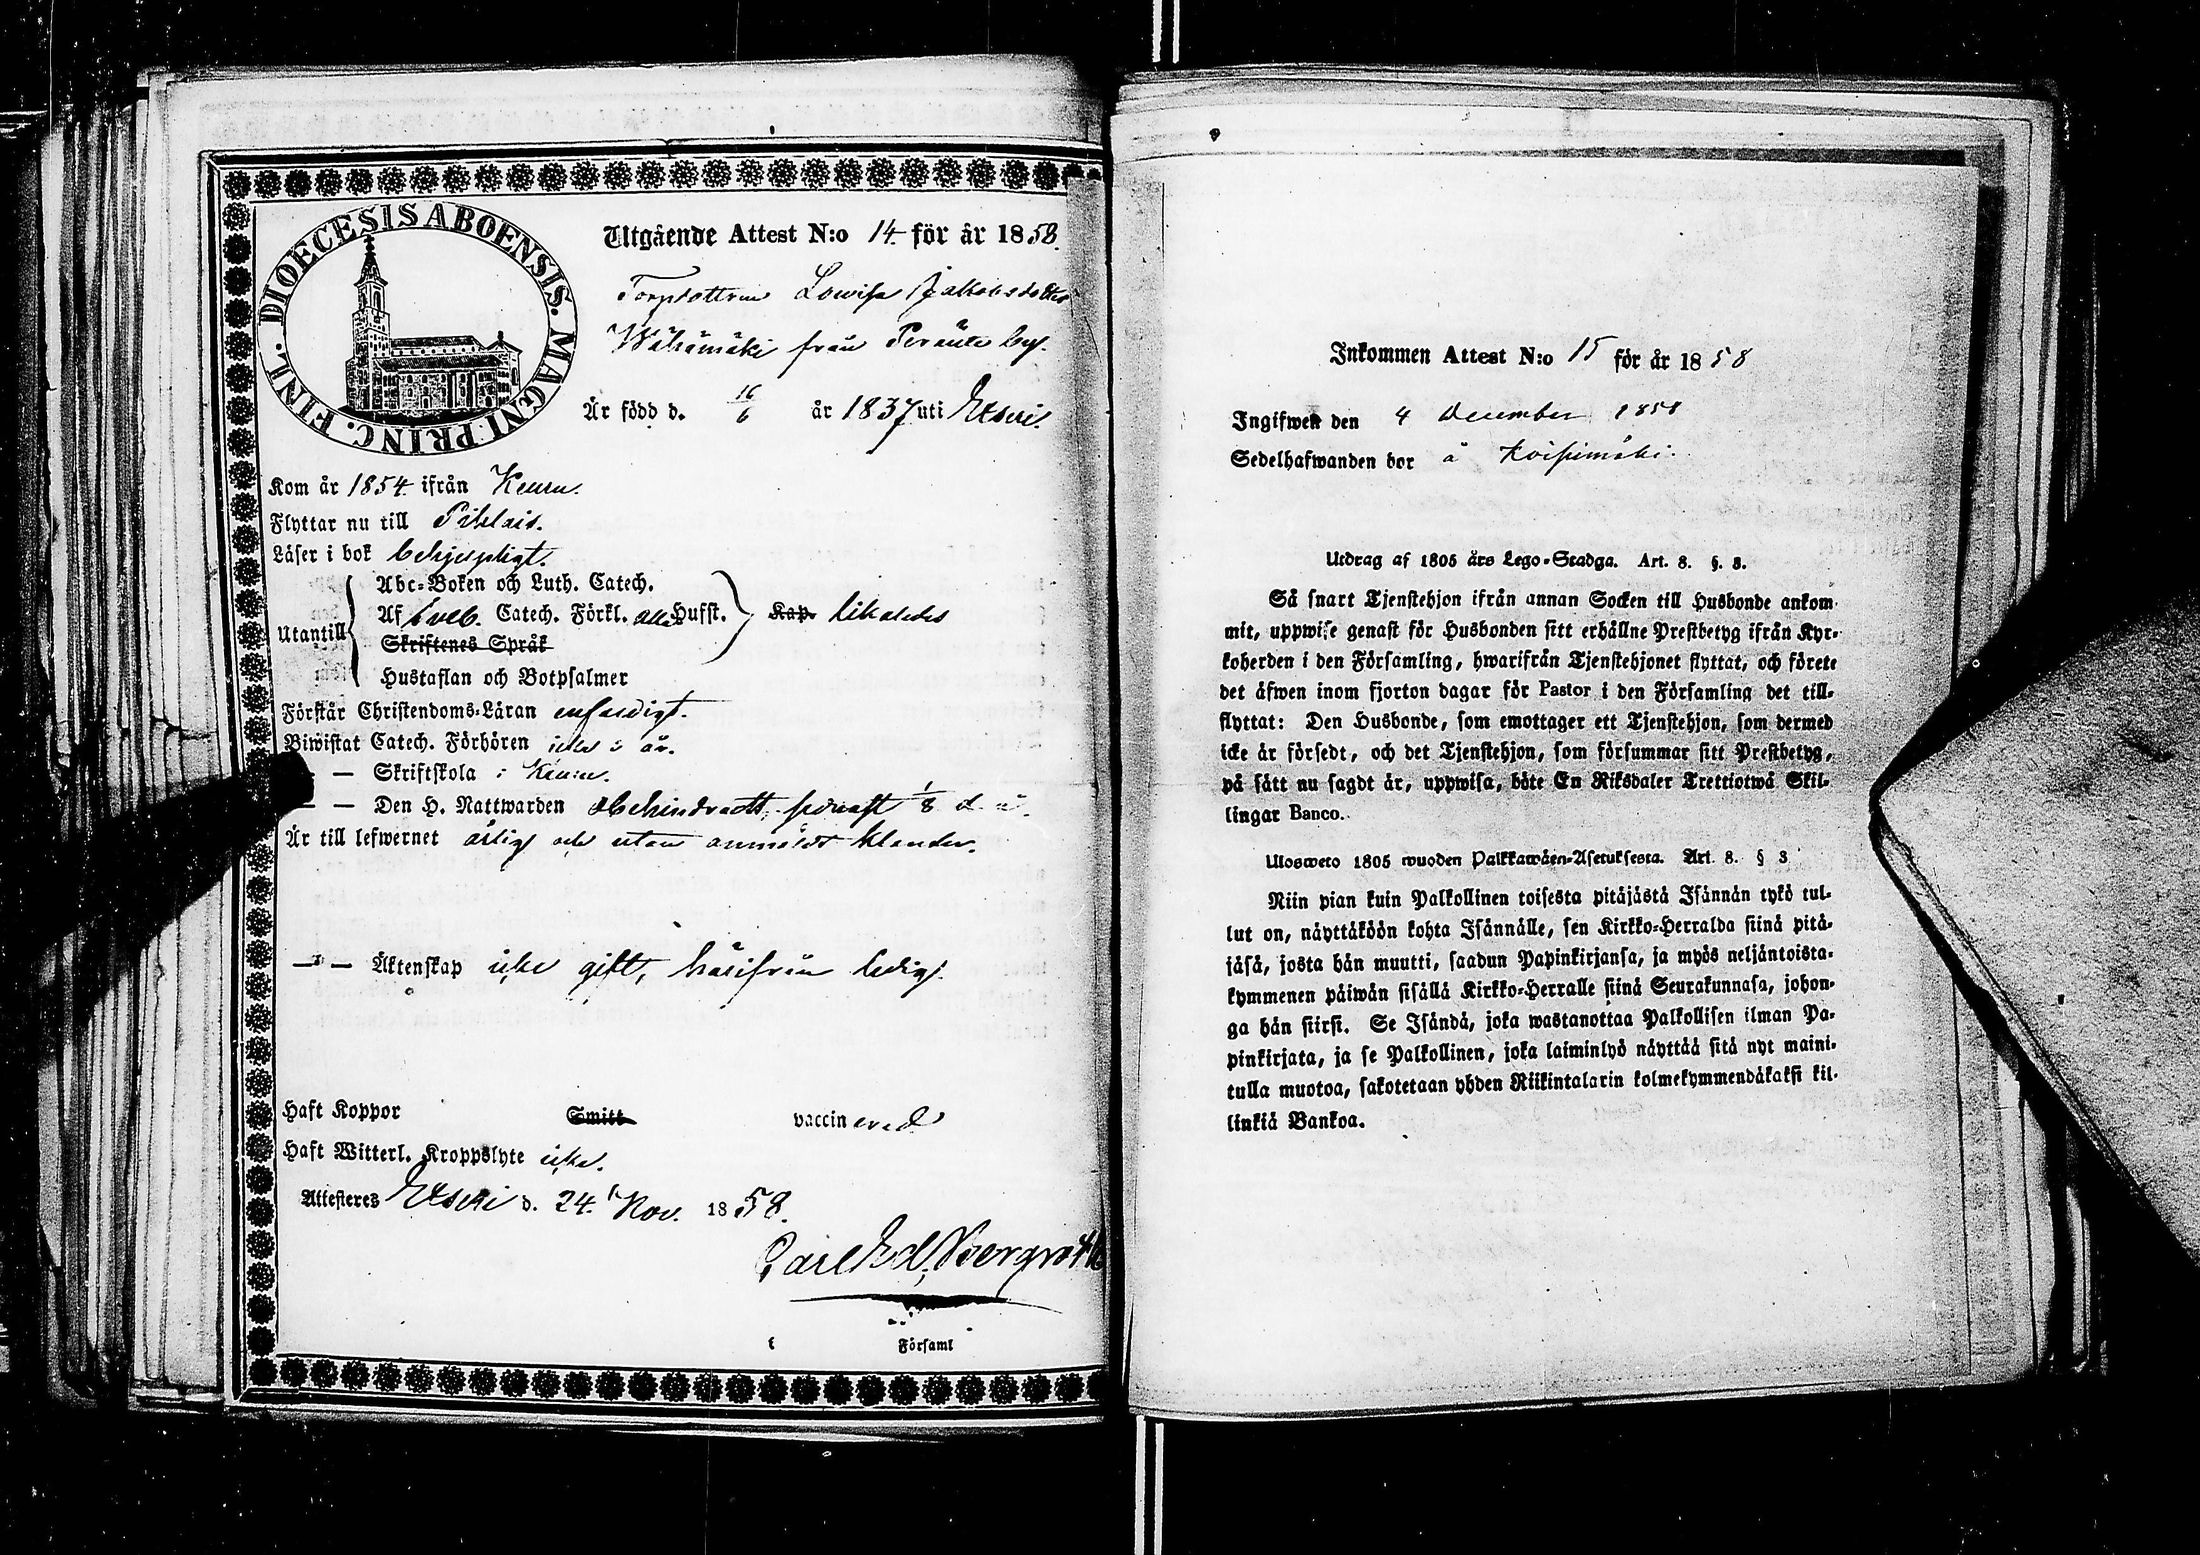 DIOECESIS ABOENSIS. MAGNI PRINC. FINL.
Utgående Attest N:o 14. för år 1858.
Torpdottren Lowisa Jakobsdotter
Wähämäki från Peränte by.
Är född d. 16/6 år 1837 uti Etseri.
Kom år 1854 ifrån Keuru.
Flyttar nu till Pihlais.
Läser i bok behjelpligt.
Abc-Boken och Luth. Catech.
Utantill Af Sveb. Catech. Förkl. alla Hufst. Kap. likaledes
Skriftenes Språk
Hustaflan och Botpsalmer
Förstår Christendoms-Läran enfaldigt.
Biwistat Catech. Förhören icke i år.
— Skriftskola i Keuru.
— — Den H. Nattwarden obehindradt, senast 1/8 d. å.
Är till lefwernet ärlig och utan anmäldt klander.
— — Äktenskap icke gift, härifrån ledig.
Haft Koppor Smitt vaccinerad
Haft Witterl. Kroppslyte icke.
Attesteres Etseri d. 24 Nov. 1858.
Carl Ed. Bergroth
Församl
Inkommen Attest N:o 15 för år 1858
Ingifwen den 4 December 1858
Sedelhafwanden bor å Koifsimäki.
Utdrag af 1805 års Lego-Stadga. Art. 8. §. 3.
Så snart Tjenstehjon ifrån annan Socken till Husbonde ankom-
mit, uppwise genast för Husbonden sitt erhållne Prestbetyg ifrån Kyr-
koherden i den Församling, hwarifrån Tjenstehjonet flyttat, och förete
det äfwen inom fjorton dagar för Pastor i den Församling det till-
flyttat: Den Husbonde, som emottager ett Tjenstehjon, som dermed
icke är försedt, och det Tjenstehjon, som försummar sitt Prestbetyg,
på sätt nu sagdt är, uppwisa, böte En Riksdaler Trettiotwå Skil-
lingar Banco.
Ulosweto 1805 wuoden Palkkawäen-Asetuksesta. Art. 8. § 3
Niin pian kuin Palkollinen toisesta pitäjästä Isännän tykö tul-
lut on, näyttäköön kohta Isännälle, sen Kirkko-Herralda siinä pitä-
jäsä, josta hän muutti, saadun Papinkirjansa, ja myös neljäntoista-
kymmenen päiwän sisällä Kirkko-Herralle siinä Seurakunnasa, johon-
ga hän siirsi. Se Isändä, joka wastanottaa Palkollisen ilman Pa-
pinkirjata, ja se Palkollinen, joka laiminlyö näyttää sitä nyt maini-
tulla muotoa, sakotetaan yhden Riikintalarin kolmekymmendäkaksi kil-
linkiä Bankoa.